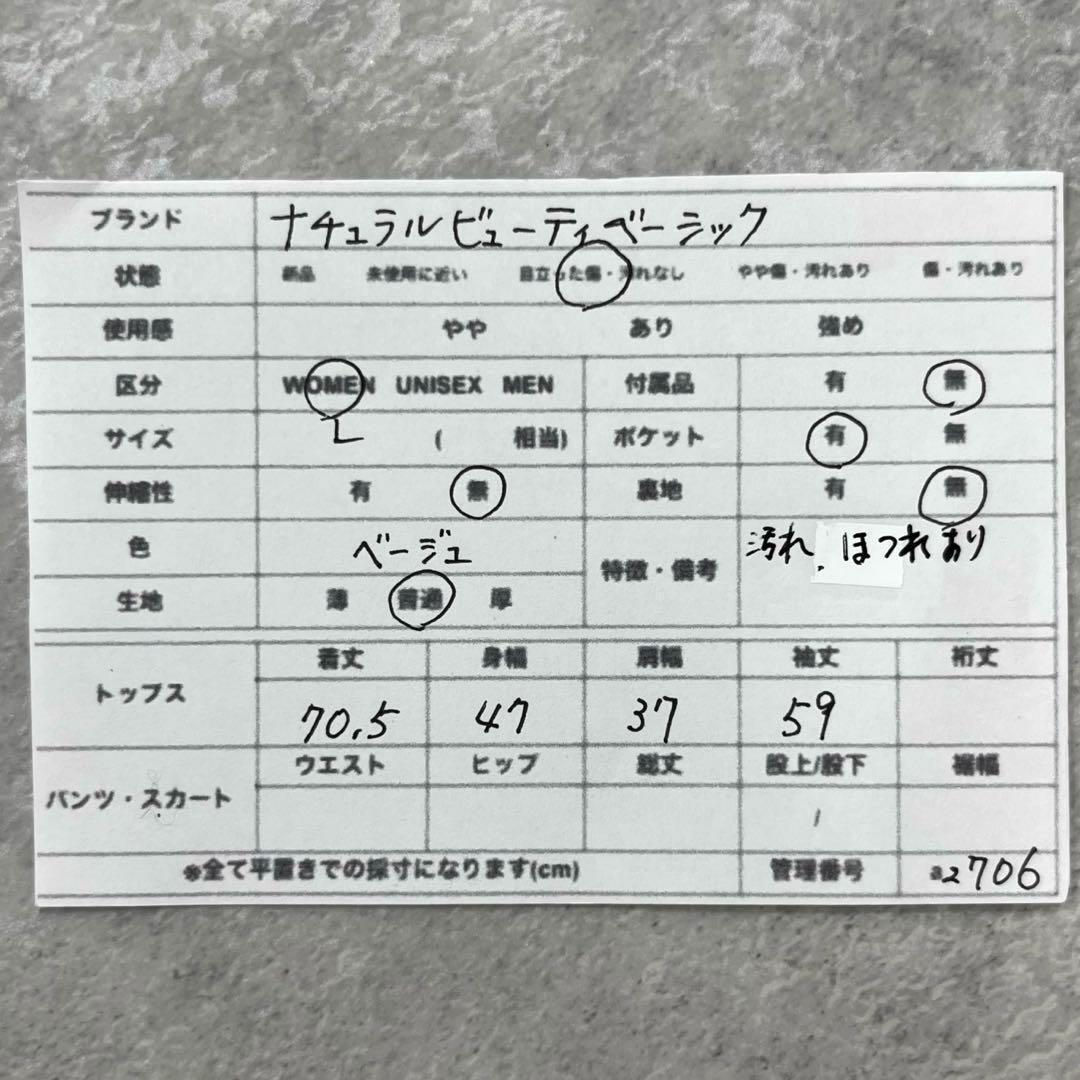 ブランド ナチュラルビューティベーシック
状態 新品 未使用に近い 目立った傷・汚れなし やや傷・汚れあり 傷・汚れあり
使用感 やや あり 強め
区分 WOMEN UNISEX MEN 付属品 有 無
サイズ L ( 相当) ポケット 有 無
伸縮性 有 無 裏地 有 無
色 ベージュ 特徴・備考 汚れ、ほつれあり
生地 薄 普通 厚
トップス 着丈 身幅 肩幅 袖丈 裄丈
70.5 47 37 59
パンツ・スカート ウエスト ヒップ 総丈 股上/股下 裾幅
/
※全て平置きでの採寸になります(cm) 管理番号 a2706